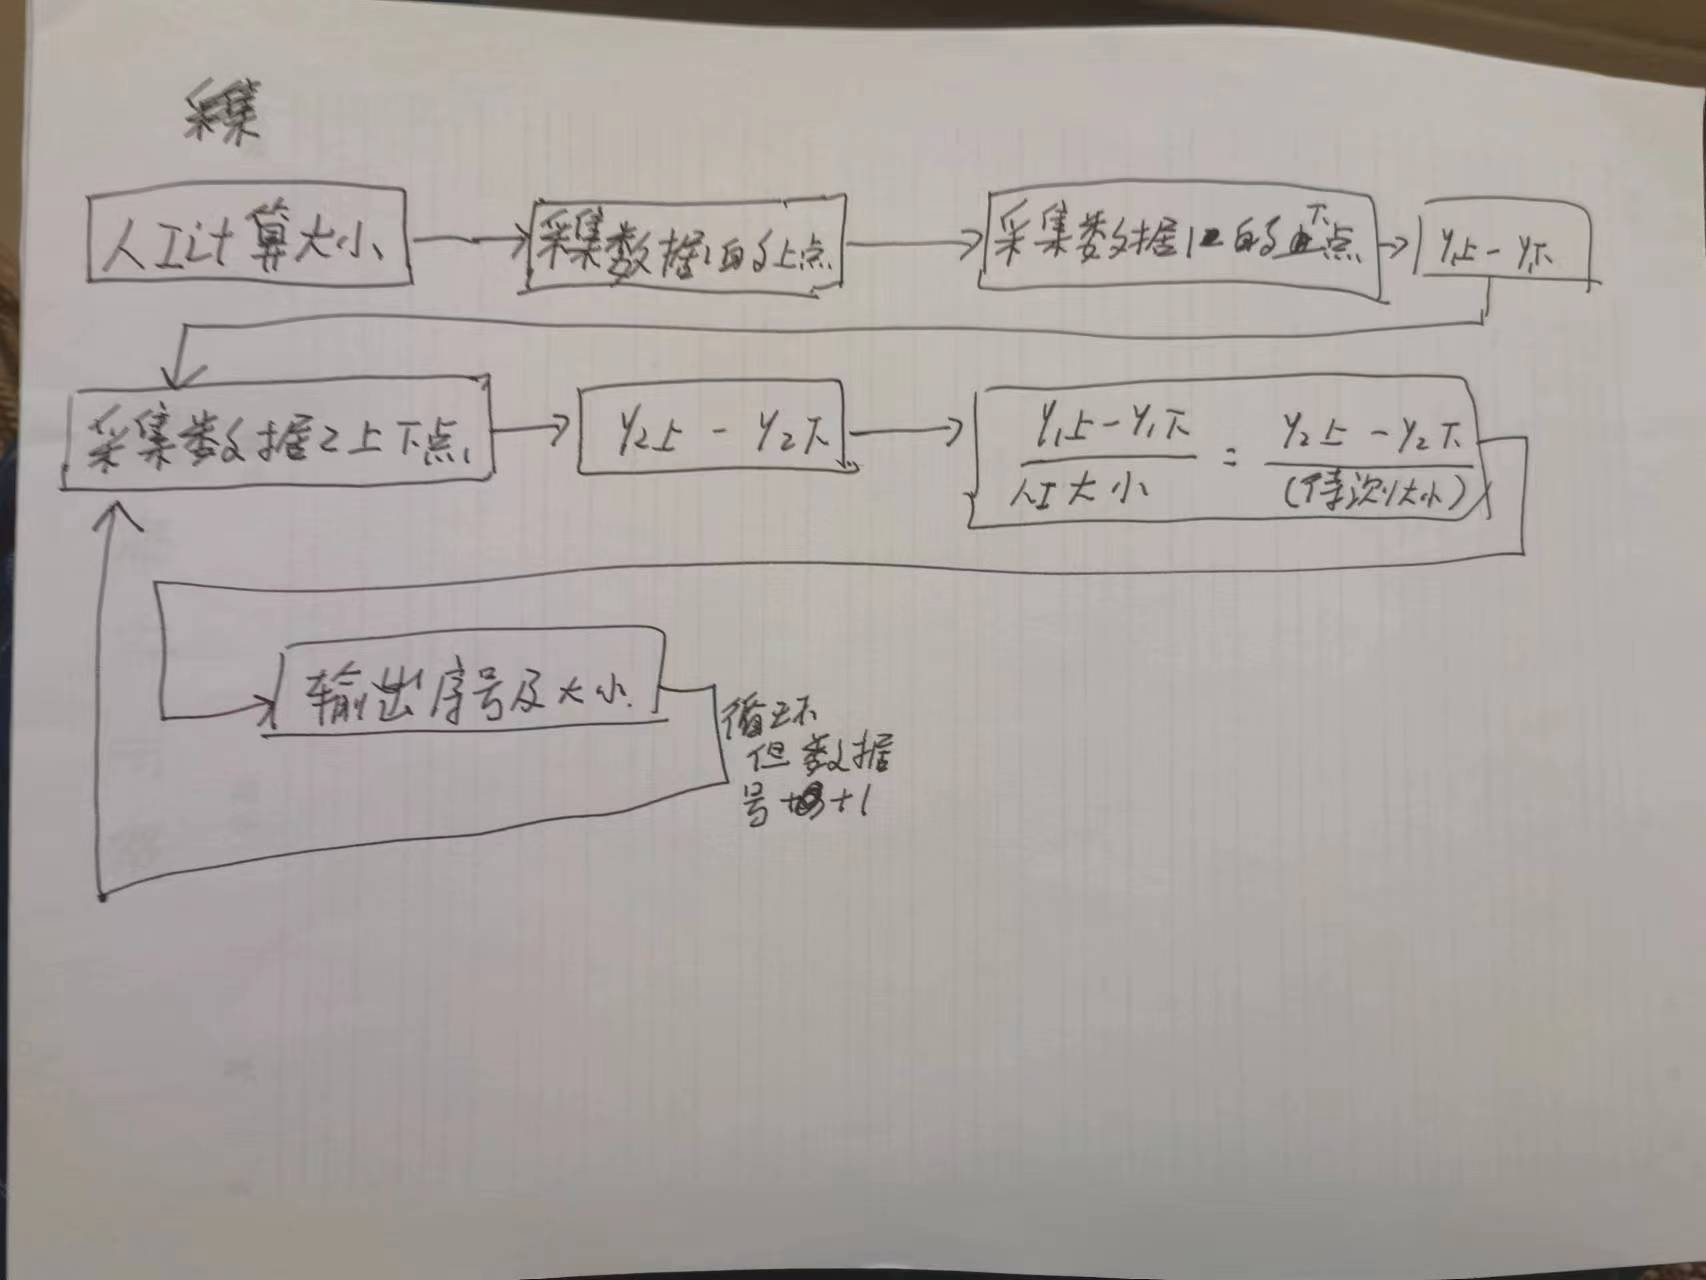 采集
人工计算大小
采集数据1的上点
采集数据1的下点
Y1上-Y1下
采集数据2上下点
Y2上-Y2下
Y1上-Y1下 = Y2上-Y2下
人工大小 (待测大小)
输出序号及大小
循环
但数据
号+1